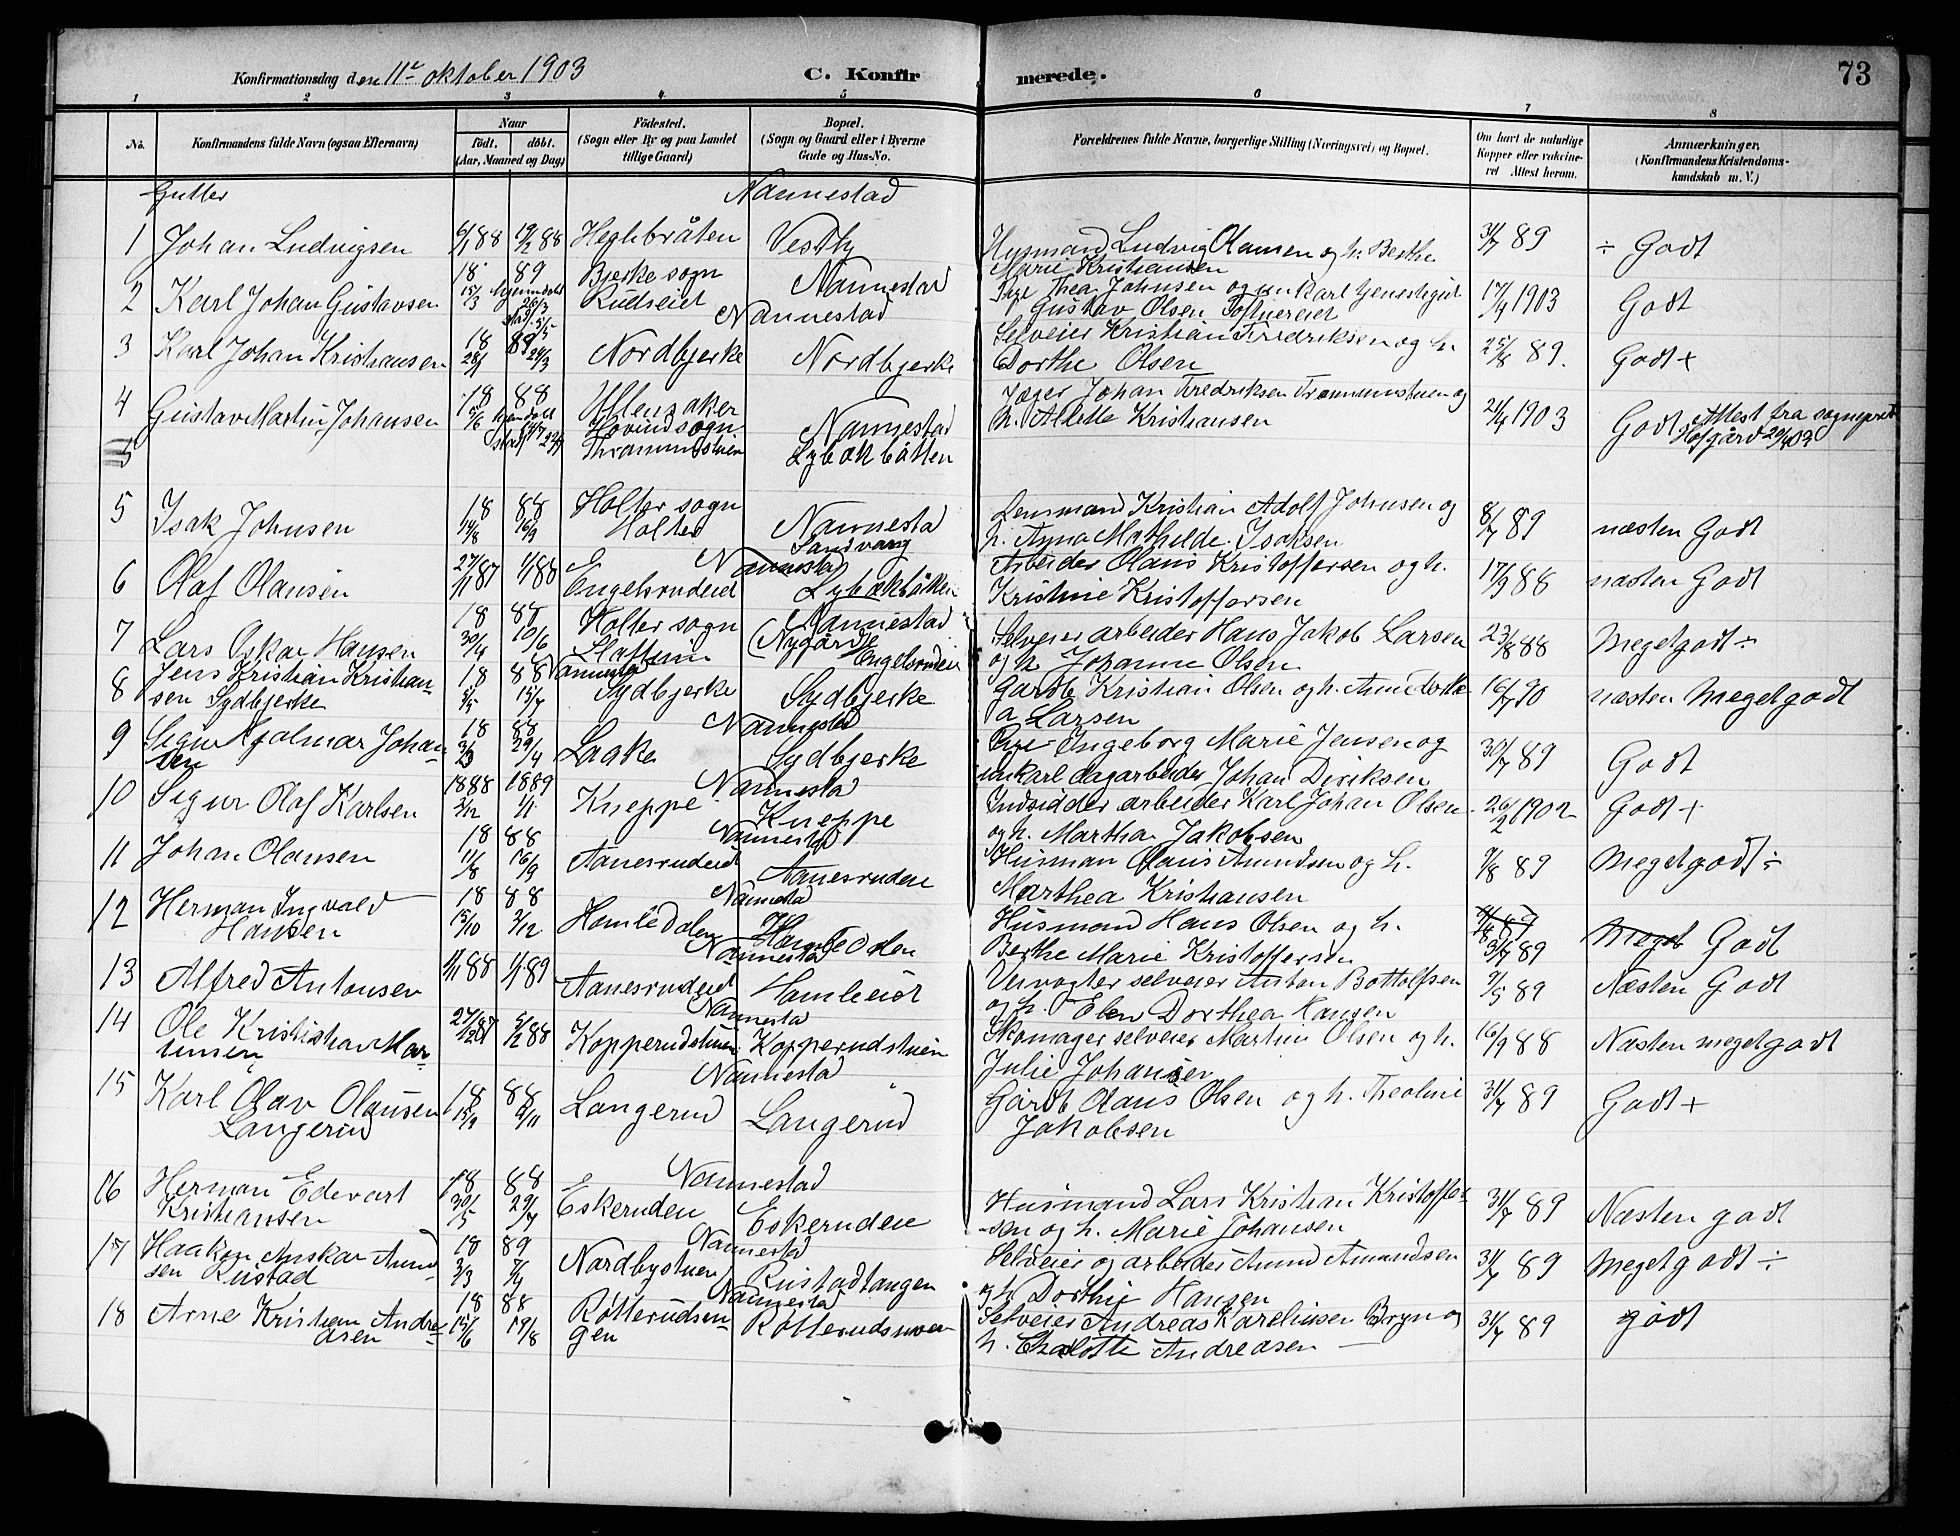 Konfirmationsdag den 11te oktober 1903
C. Konfir merede.
73
1 2 3 4 5 6 7 8
No. Konfirmandens fulde Navn (ogsaa Efternavn)
Naar født. døbt. (Aar, Maaned og Dag)
Fødested. (Sogn eller By og paa Landet tillige Gaard)
Bopæl. (Sogn og Gaard eller i Byerne Gade og Hus-No.
Forældrenes fulde Navne, borgerlige Stilling (Næringsvei) og Bopæl.
Om havt de naturlige Kopper eller vakcineret Attest herom.
Anmærkninger. (Konfirmandens Kristendomskundskab m. V.)
Gutter Nannestad
1 Johan Ludvigsen 6/1 88 19/2 88 Heglibråten Vestby Husmand Ludvig Olausen og h. Berthe 31/7 89 ÷ Godt
Marie Kristiansen
2 Karl Johan Gustavsen 18 89 15/3 Bjerke sogn Rudseiet Nannestad Pige Thea Johnsen og unkarl 17/4 1903 Godt
Gustav Olsen
Nannestad
3 Karl Johan Kristiansen 18 89 28/1 24/3 Nordbjerke Nordbjerke Selveier Kristian Fredriksen og h. 25/8 89. Godt +
Dorthe Olsen
4 Gustav Martin Johansen 18 88 Ullensaker Hovind sogn Nannestad Jæger Johan Fredriksen og 21/4 1903 Godt Attest fra sogneprest
h. Alette Kristiansen Hofgård
5 Lybækbåtten
5 Isak Johnsen 18 88 14/8 16/9 Holter sogn Holter Nannesta Sandvang Lensmand Kristian Adolf Johnsen og 8/7 89 næsten Godt
h. Anna Mathilde Isaksen
Nannesta
6 Olaf Olausen 27/11 87 1/1 88 Engelsrudeiet Lybækbåtten Arbeider Olaus Kristoffersen og h. 17/9 88 næsten Godt
Kristine Kristoffersen
7 Lars Oskar Hansen 18 88 30/4 10/6 Holter sogn Nannestad (Nygårde Engelsrudeie Selveier arbeider Hans Jakob Larsen 23/8 88 Megetgodt ÷
og h. Johanne Olsen
8 Jens Kristian Kristiansen Sydbjerke 18 88 5/5 15/7 Nannestad Sydbjerke Sydbjerke Gårdb. Kristian Olsen og h. 16/7 90 næsten Megetgodt
a Larsen
Nannestad
9 Sigur Hjalmar Johansen 18 88 29/4 Laake Sydbjerke Pige Ingeborg Marie Jensen og 30/7 89 Godt
unkarl dagarbeider Johan Diriksen
Nannesta
10 Sigur Olaf Karlsen 1888 1889 2/12 1/1 Kneppe Kneppe Indsidder arbeider Karl Johan Olsen 26/2 1902 Godt +
og h. Martha Jakobsen
Nannestad
11 Johan Olausen 18 88 11/8 16/9 Aanesrudeiet Aanesrudeie Husman Olaus Amundsen og h. 9/8 89 Megetgodt ÷
Marthea Kristiansen
Nannesta
12 Herman Ingvald Hansen 18 88 15/10 2/12 Homledalen Husmand Hans Olsen og h. 31/7 89 Meget Godt
Berthe Marie Kristoffersen
Nannesta
13 Alfred Antonsen 11/11 88 1/1 89 Aanesrudeiet Homleeiet selveier Anton Bottolfsen 9/5 89 Næsten Godt
og h. Elen Dorthea Hansen
Nannesta
14 Ole Kristishan Martinsen 27/12 87 5/2 88 Kopperudstuen Kopperudstuen Skomager selveier Martin Olsen og h. 16/9 88 Næsten megetgodt
Julie Johansen
Nannesta
15 Karl Olav Olausen Langerud 18 88 15/9 Langerud Langerud Gårdb Olaus Olsen og h. Theoline 31/7 89 Godt +
Jakobsen
Nannestad
16 Herman Edevart Kristiansen 18 88 30/5 29/7 Eskeruden Eskerudeie Husmand Lars Kristian Kristoffersen og h. Marie Johansen 31/7 89 Næsten godt
Nannestad
17 Haakon Anskar Amundsen Rustad 18 89 3/3 7/4 Nordbystuen Rustadtangen Selveier og arbeider Amund Amundsen 31/7 89 Megetgodt ÷
og h Dorthe Hansen
Nannestad
18 Arne Kristian Andreasen 18 88 15/6 19/8 Rotterudsengen Selveier Andreas Karelinsen Bryn og 31/7 89 godt
h. Charlotte Andreasen